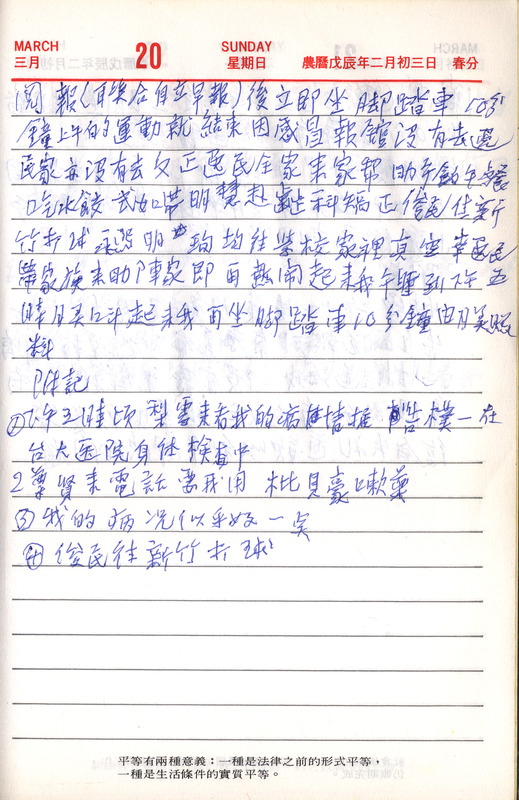 MARCH
三月
20
SUNDAY
星期日
農曆戊辰年二月初三日 春分
閱報(耳聯合自立早報)後立即坐腳踏車10分
鐘上午的運動就結束因感昌報館沒有去選
民家亦沒有去文正選民全家來家幫助午餐
吃水餃 明慧赴齒科矯正俊民住新
竹打球 明 均往學校家裡真空幸選民
帶家族來助陣家即再熱鬧起來我午睡到下午五
時月美叫起來我再坐腳踏車10分鐘由月美照
料
附記
①下午五時頃梨雲來看我的病 情據告樸一在
台大医院身体檢查中
2 尊賢來電話要我用枇貝豪嗽藥
③我的病況似乎好一点
④俊民往新竹打球
平等有兩種意義:一種是法律之前的形式平等,
一種是生活條件的實質平等。